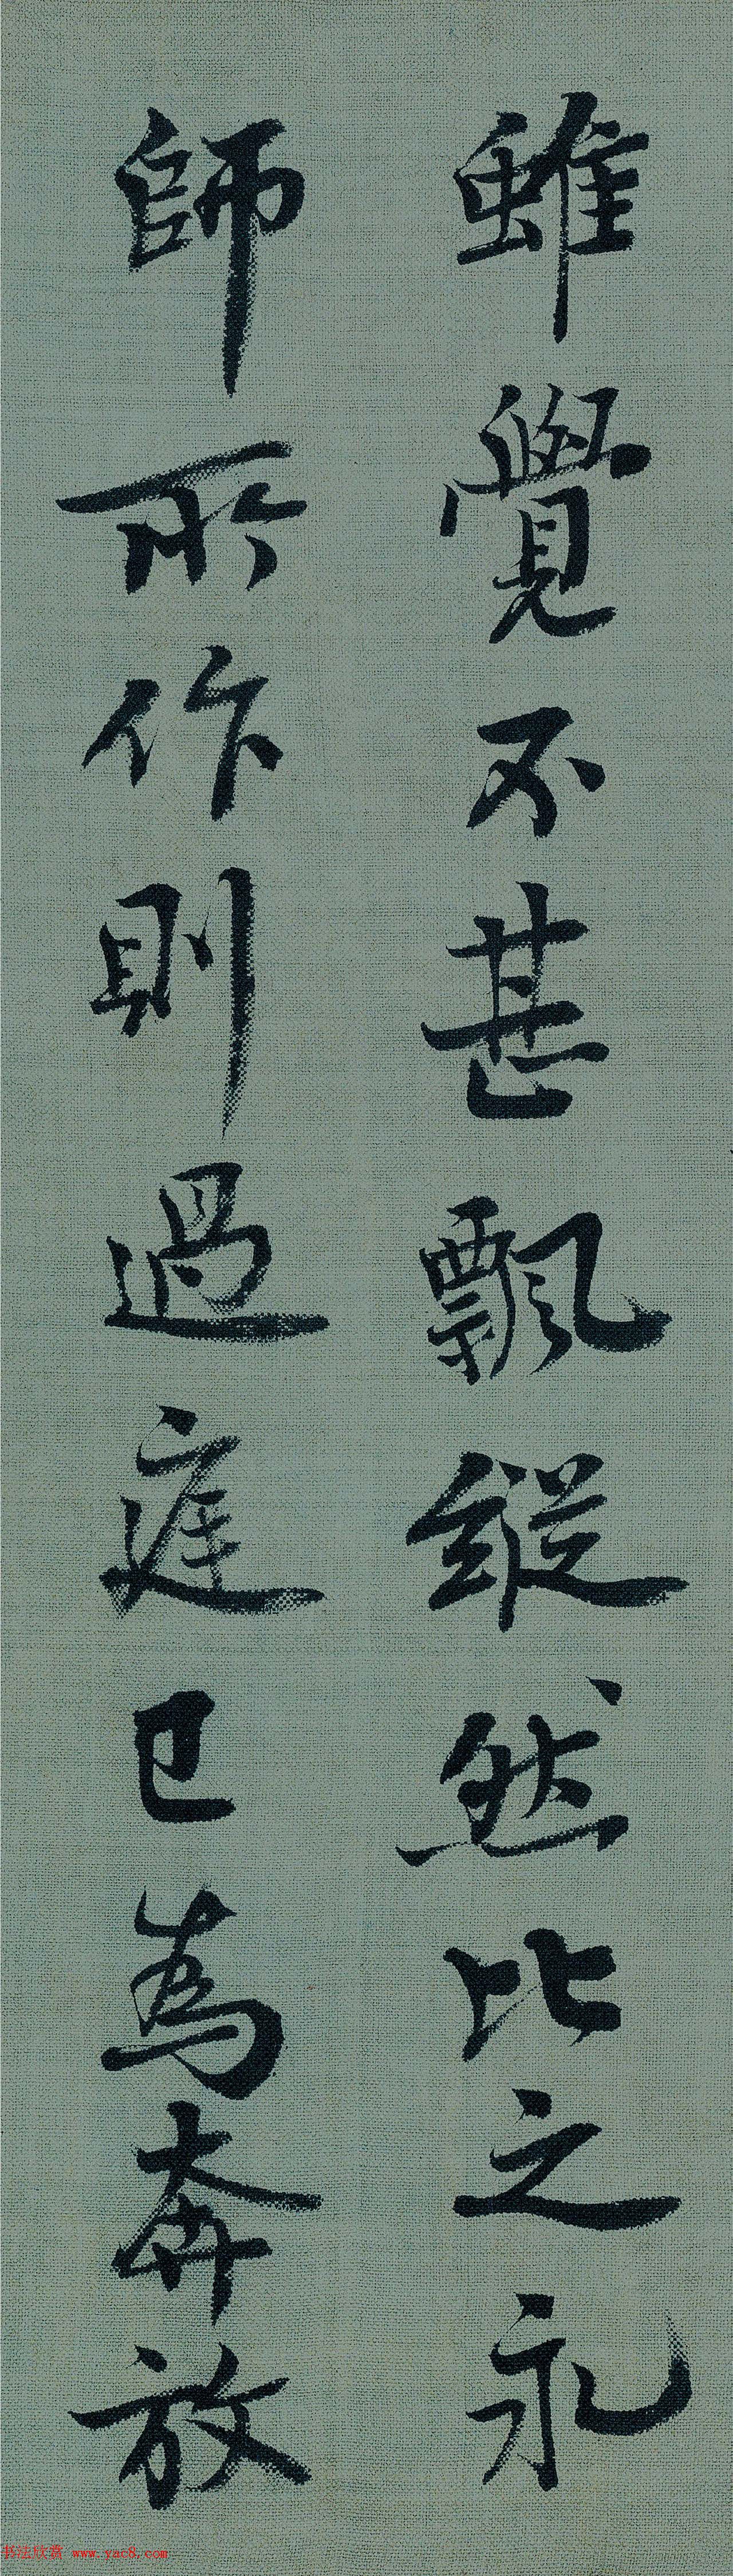 雖覺不甚飄縱然比之永
師所作則過庭已為奔放
书法欣赏 www.yac8.com